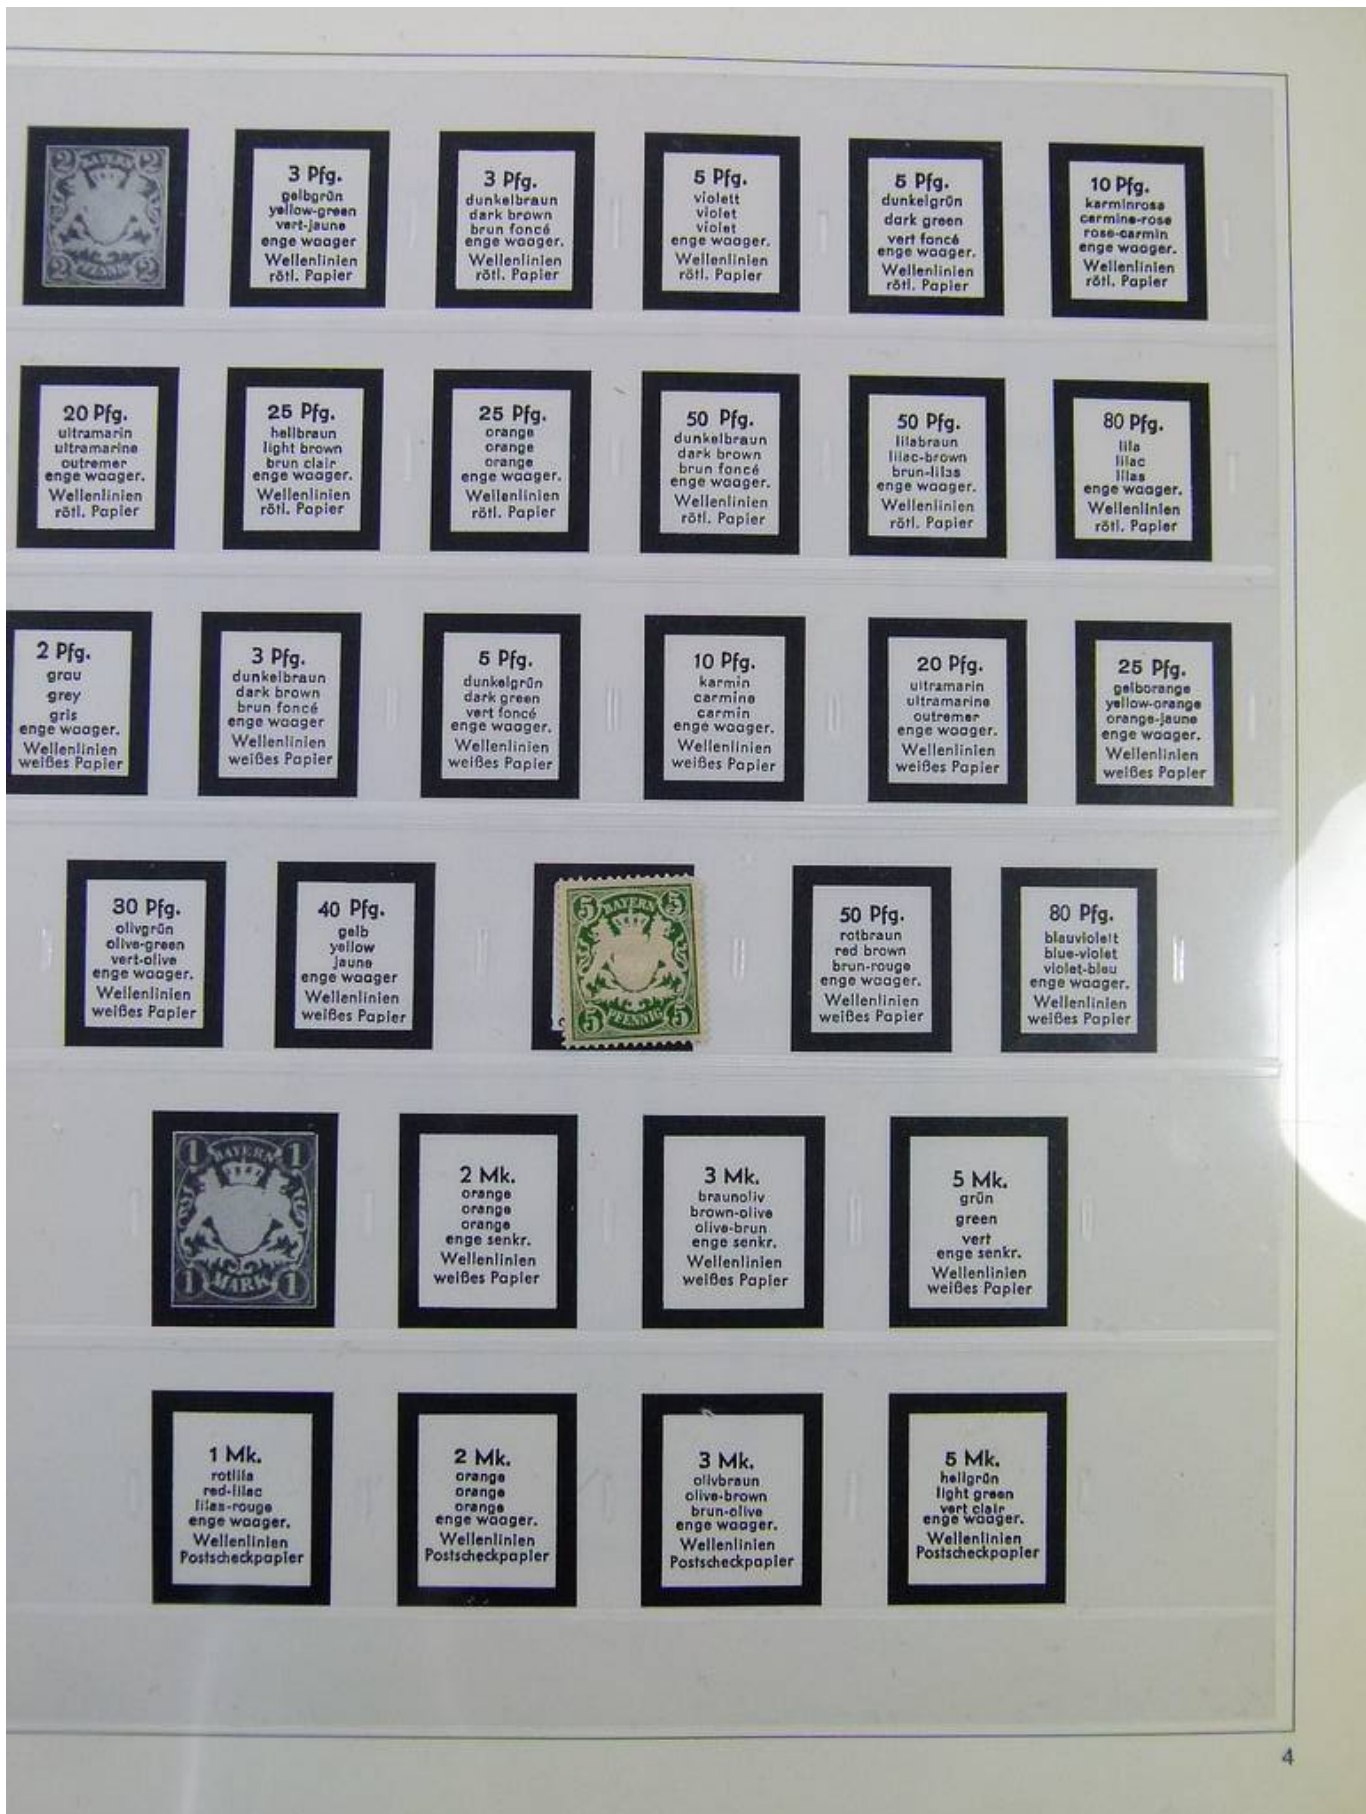 2 2
BAYERN
2 2
PFENNIG
3 Pfg.
gelbgrün
yellow-green
vert-jaune
enge waager
Wellenlinien
rötl. Papier
3 Pfg.
dunkelbraun
dark brown
brun foncé
enge waager.
Wellenlinien
rötl. Papier
5 Pfg.
violett
violet
violet
enge waager.
Wellenlinien
rötl. Papier
5 Pfg.
dunkelgrün
dark green
vert foncé
enge waager.
Wellenlinien
rötl. Papier
10 Pfg.
karminrosa
carmine-rose
rose-carmin
enge waager.
Wellenlinien
rötl. Papier
20 Pfg.
ultramarin
ultramarine
outremer
enge waager.
Wellenlinien
rötl. Papier
25 Pfg.
hellbraun
light brown
brun clair
enge waager.
Wellenlinien
rötl. Papier
25 Pfg.
orange
orange
orange
enge waager.
Wellenlinien
rötl. Papier
50 Pfg.
dunkelbraun
dark brown
brun foncé
enge waager.
Wellenlinien
rötl. Papier
50 Pfg.
lilabraun
lilac-brown
brun-lilas
enge waager.
Wellenlinien
rötl. Papier
80 Pfg.
lila
lilac
lilas
enge waager.
Wellenlinien
rötl. Papier
2 Pfg.
grau
grey
gris
enge waager.
Wellenlinien
weißes Papier
3 Pfg.
dunkelbraun
dark brown
brun foncé
enge waager
Wellenlinien
weißes Papier
5 Pfg.
dunkelgrün
dark green
vert foncé
enge waager.
Wellenlinien
weißes Papier
10 Pfg.
karmin
carmine
carmin
enge waager.
Wellenlinien
weißes Papier
20 Pfg.
ultramarin
ultramarine
outremer
enge waager.
Wellenlinien
weißes Papier
25 Pfg.
gelborange
yellow-orange
orange-jaune
enge waager.
Wellenlinien
weißes Papier
30 Pfg.
olivgrün
olive-green
vert-olive
enge waager.
Wellenlinien
weißes Papier
40 Pfg.
gelb
yellow
jaune
enge waager
Wellenlinien
weißes Papier
5 5
BAYERN
5 5
PFENNIG
50 Pfg.
rotbraun
red brown
brun-rouge
enge waager.
Wellenlinien
weißes Papier
80 Pfg.
blauviolett
blue-violet
violet-bleu
enge waager.
Wellenlinien
weißes Papier
1 1
BAYERN
1 1
MARK
2 Mk.
orange
orange
orange
enge senkr.
Wellenlinien
weißes Papier
3 Mk.
braunoliv
brown-olive
olive-brun
enge senkr.
Wellenlinien
weißes Papier
5 Mk.
grün
green
vert
enge senkr.
Wellenlinien
weißes Papier
1 Mk.
rotlila
red-lilac
lilas-rouge
enge waager.
Wellenlinien
Postscheckpapier
2 Mk.
orange
orange
orange
enge waager.
Wellenlinien
Postscheckpapier
3 Mk.
olivbraun
olive-brown
brun-olive
enge waager.
Wellenlinien
Postscheckpapier
5 Mk.
hellgrün
light green
vert clair
enge waager.
Wellenlinien
Postscheckpapier
4